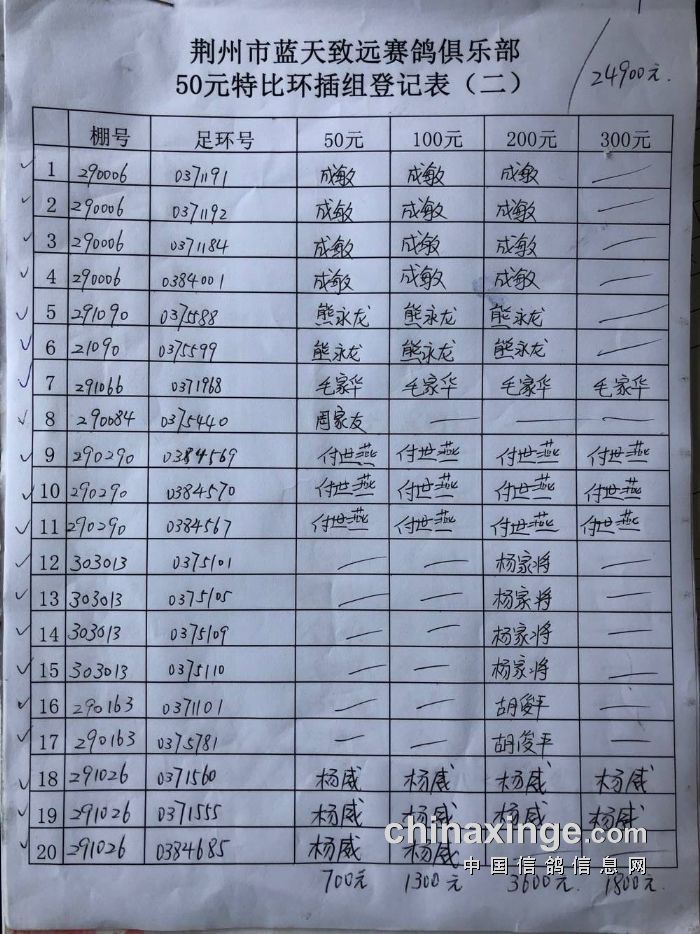 荆州市蓝天致远赛鸽俱乐部
50元特比环插组登记表（二）
24900元.
棚号 足环号 50元 100元 200元 300元
1 290006 0371191 成敏 成敏 成敏 —
2 290006 0371192 成敏 成敏 成敏 —
3 290006 0371184 成敏 成敏 成敏 —
4 290006 0384001 成敏 成敏 成敏 —
5 291090 0375588 熊永龙 熊永龙 熊永龙 —
6 21090 0375599 熊永龙 熊永龙 熊永龙 —
7 291066 0371968 毛家华 毛家华 毛家华 毛家华
8 290084 0375440 周家友 — — —
9 290290 0384569 付世燕 付世燕 付世燕 付世燕
10 290290 0384570 付世燕 付世燕 付世燕 付世燕
11 290290 0384567 付世燕 付世燕 付世燕 付世燕
12 303013 0375101 — — 杨家将 —
13 303013 0375105 — — 杨家将 —
14 303013 0375109 — — 杨家将 —
15 303013 0375110 — — 杨家将 —
16 290163 0371101 — — 胡俊平 —
17 290163 0375781 — — 胡俊平 —
18 291026 0371560 杨威 杨威 杨威 杨威
19 291026 0371555 杨威 杨威 杨威 杨威
20 291026 0384685 杨威 杨威 — —
700元 1300元 3600元. 1800元.
chinaxinge.com
中国信鸽信息网